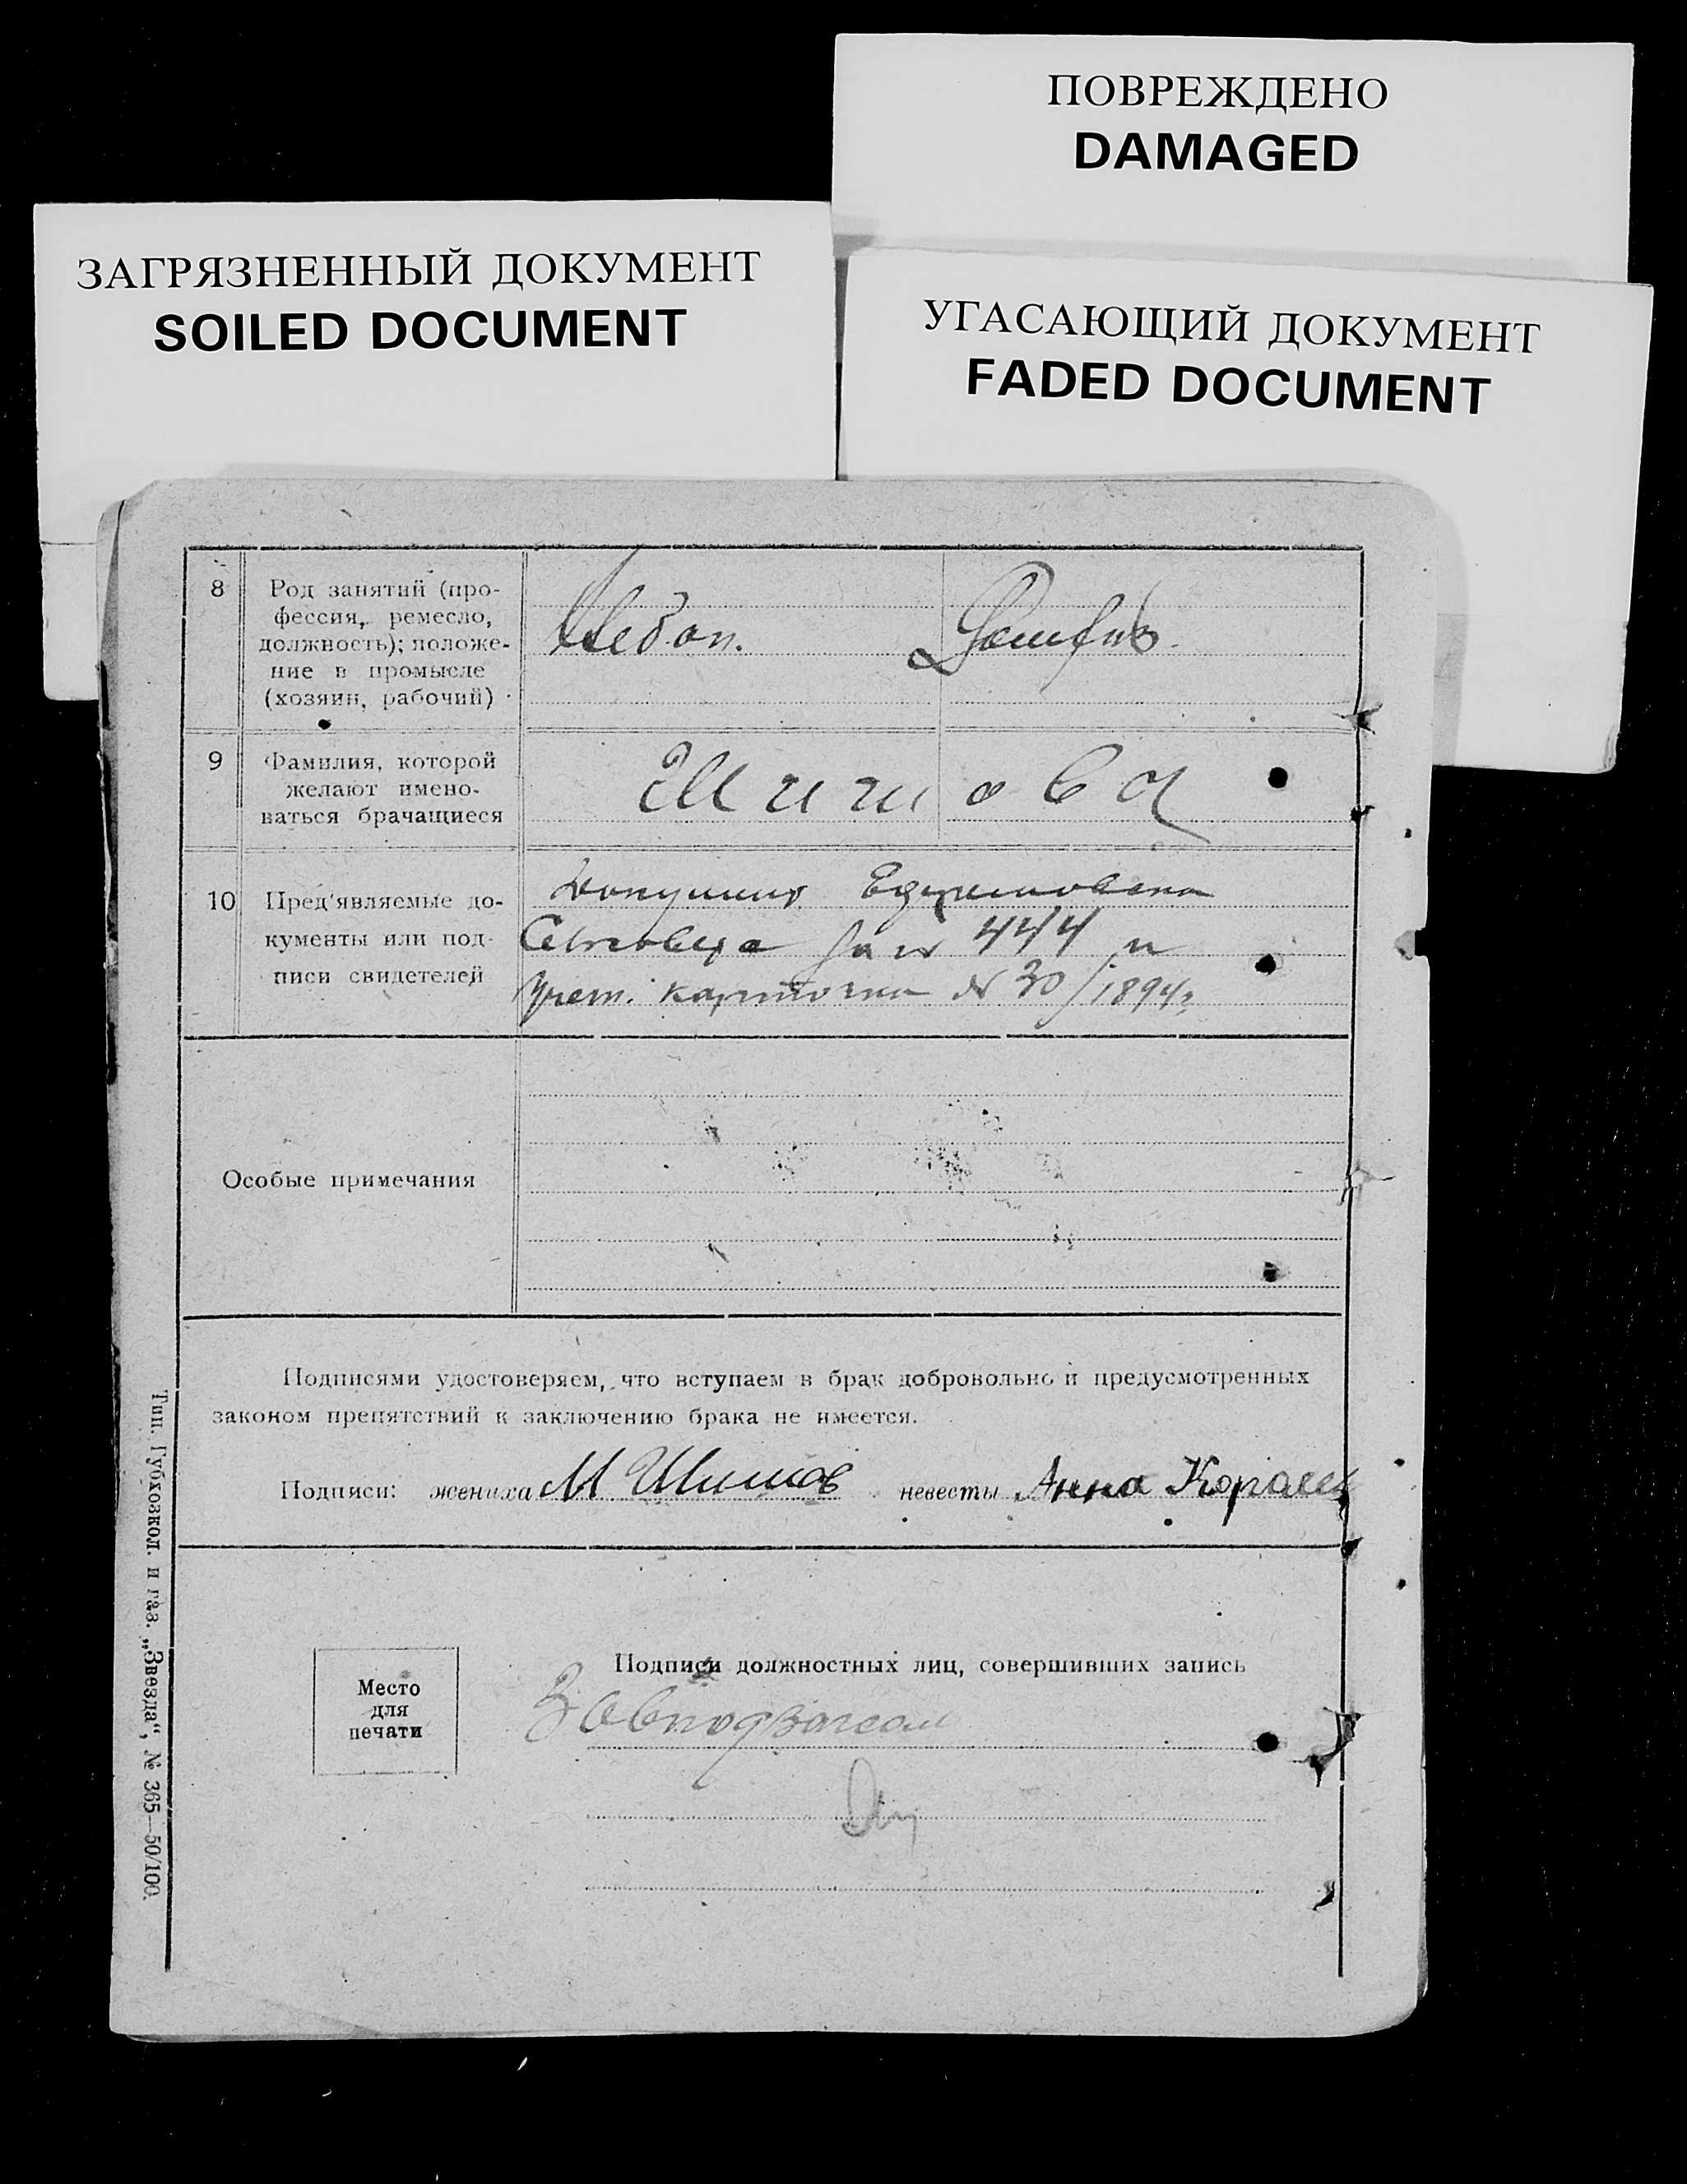 ПОВРЕЖДЕНО
DAMAGED
ЗАГРЯЗНЕННЫЙ ДОКУМЕНТ
SOILED DOCUMENT
УГАСАЮЩИЙ ДОКУМЕНТ
FADED DOCUMENT
8 Род занятий (про-
фессия, ремесло,
должность); положе-
ние в промысле
(хозяин, рабочий)
9 Фамилия, которой
желают имено-
ваться брачащиеся
Шишова
10 Пред'являемые до-
кументы или под-
писи свидетелей
за № 444 и
учет. карточка № 30/1894г.
Особые примечания
Подписями удостоверяем, что вступаем в брак добровольно и предусмотренных
законом препятствий к заключению брака не имеется.
Подписи: жениха М Шишов невесты Анна Королев
Подписи должностных лиц, совершивших запись
Место
для
печати
Завподзагсом
Тип. Губхозкол. и газ. „Звезда“, № 365—50/100.